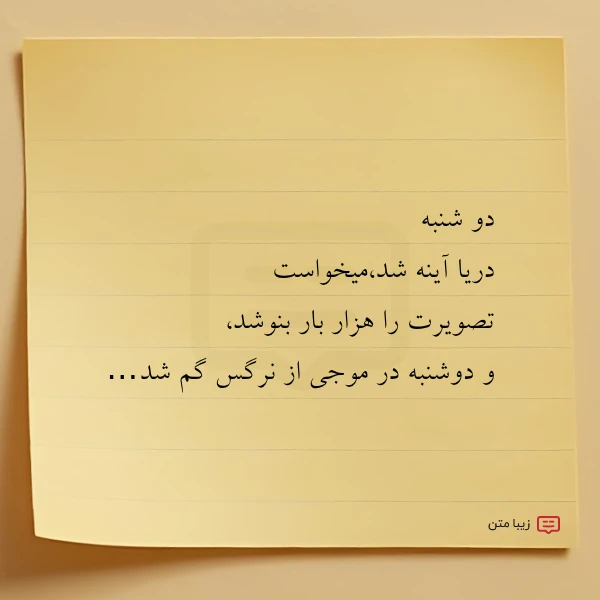 دو شنبه
دریا آینه شد،میخواست
تصویرت را هزار بار بنوشد،
و دوشنبه در موجی از نرگس گم شد...
زیبا متن